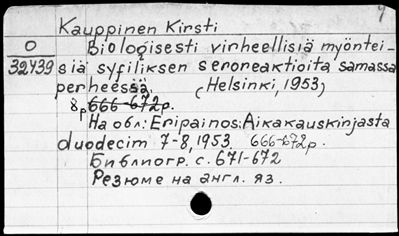 y
Kauppinen Kirsti
O
32439
Biologisesti virheellisiä myöntei-
siä syfiliksen seroreaktioita samassa
perheessä. (Helsinki, 1953)
8p 666-672p.
На обл: Eripainos: Aikakauskirjasta
duodecim 7-8, 1953. 666-672p.
Библиогр. с. 671-672
Резюме на англ. яз.